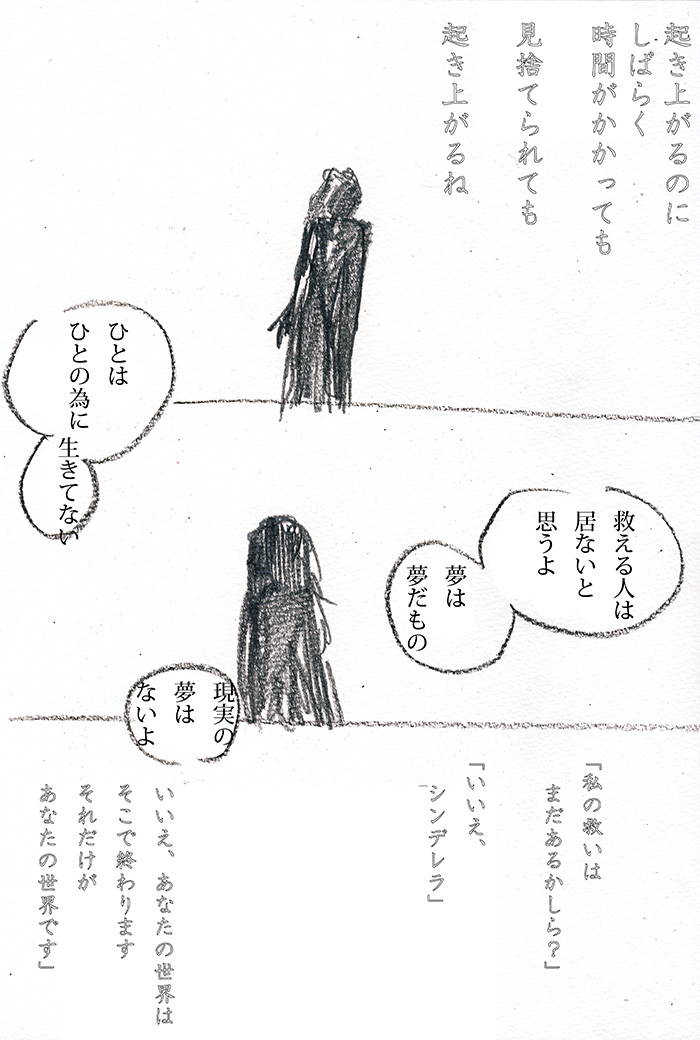 起き上がるのに
しばらく
時間がかかっても
見捨てられても
起き上がるね
ひとは
ひとの為に
生きてない
救える人は
居ないと
思うよ
夢は
夢だもの
現実の
夢は
ないよ
「私の救いは
まだあるかしら？」
「いいえ、
シンデレラ」
いいえ、あなたの世界は
そこで終わります
それだけが
あなたの世界です」